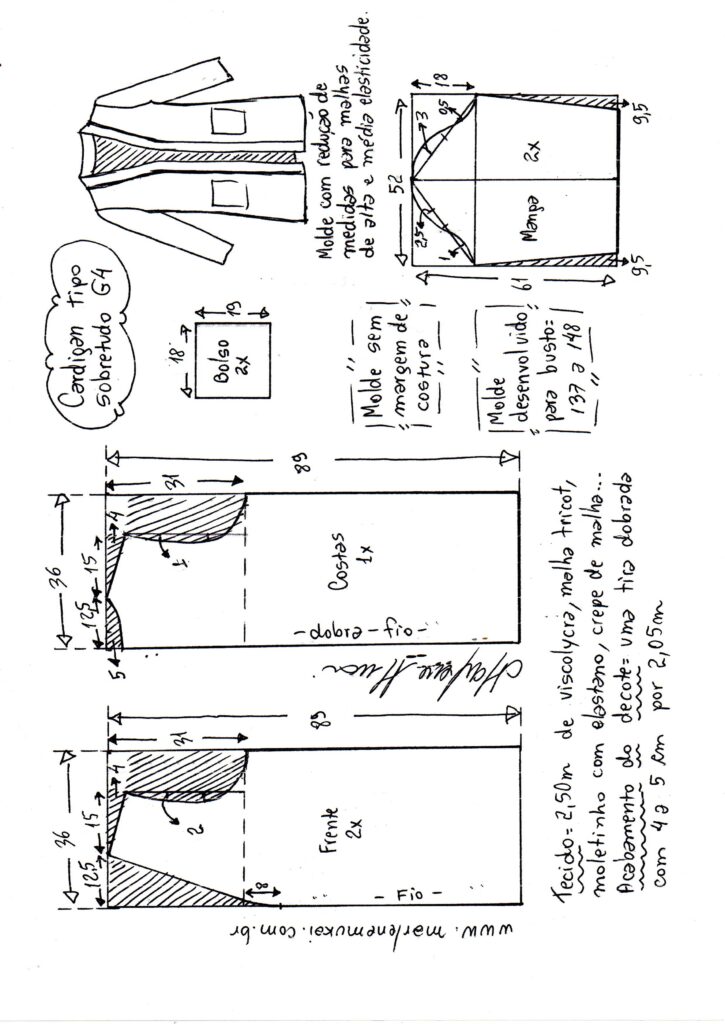 Cardigan tipo
sobretudo G4
Molde com redução de
medidas para malhas
de alta e média elasticidade.
Bolso
2x
18
19
Molde sem
margem de
costura
Molde
desenvolvido
para busto=
137 a 148
52
18
3
2,5
1
Manga
2x
61
9,5
9,5
36
12,5
15
4
5
31
89
Costas
1x
dobra - fio -
36
12,5
15
4
31
89
2
8
Frente
2x
- Fio -
www.marlenemukai.com.br
Tecido= 2,50m de viscolycra, malha tricot,
moletinho com elastano, crepe de malha...
Acabamento do decote= uma tira dobrada
com 4 a 5 cm por 2,05m